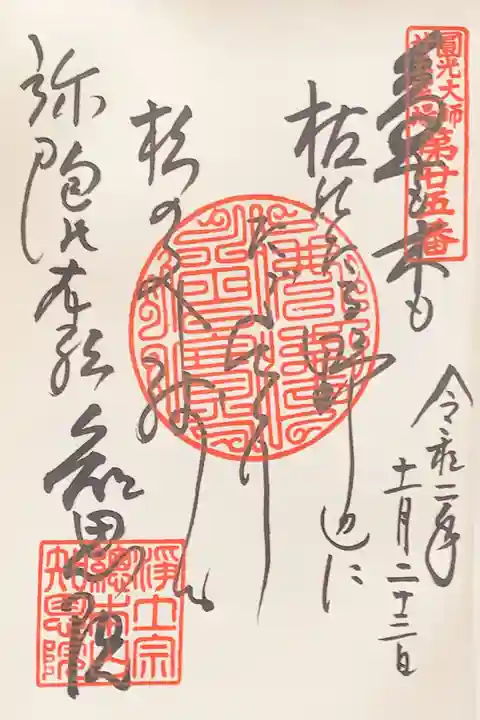 圓光大師
第廿五番
草も木も
枯れたる野辺に
たゞひとり
松のみ残る
弥陀の本願
知恩院
令和二年
十一月二十三日
淨土宗
總本山
知恩院